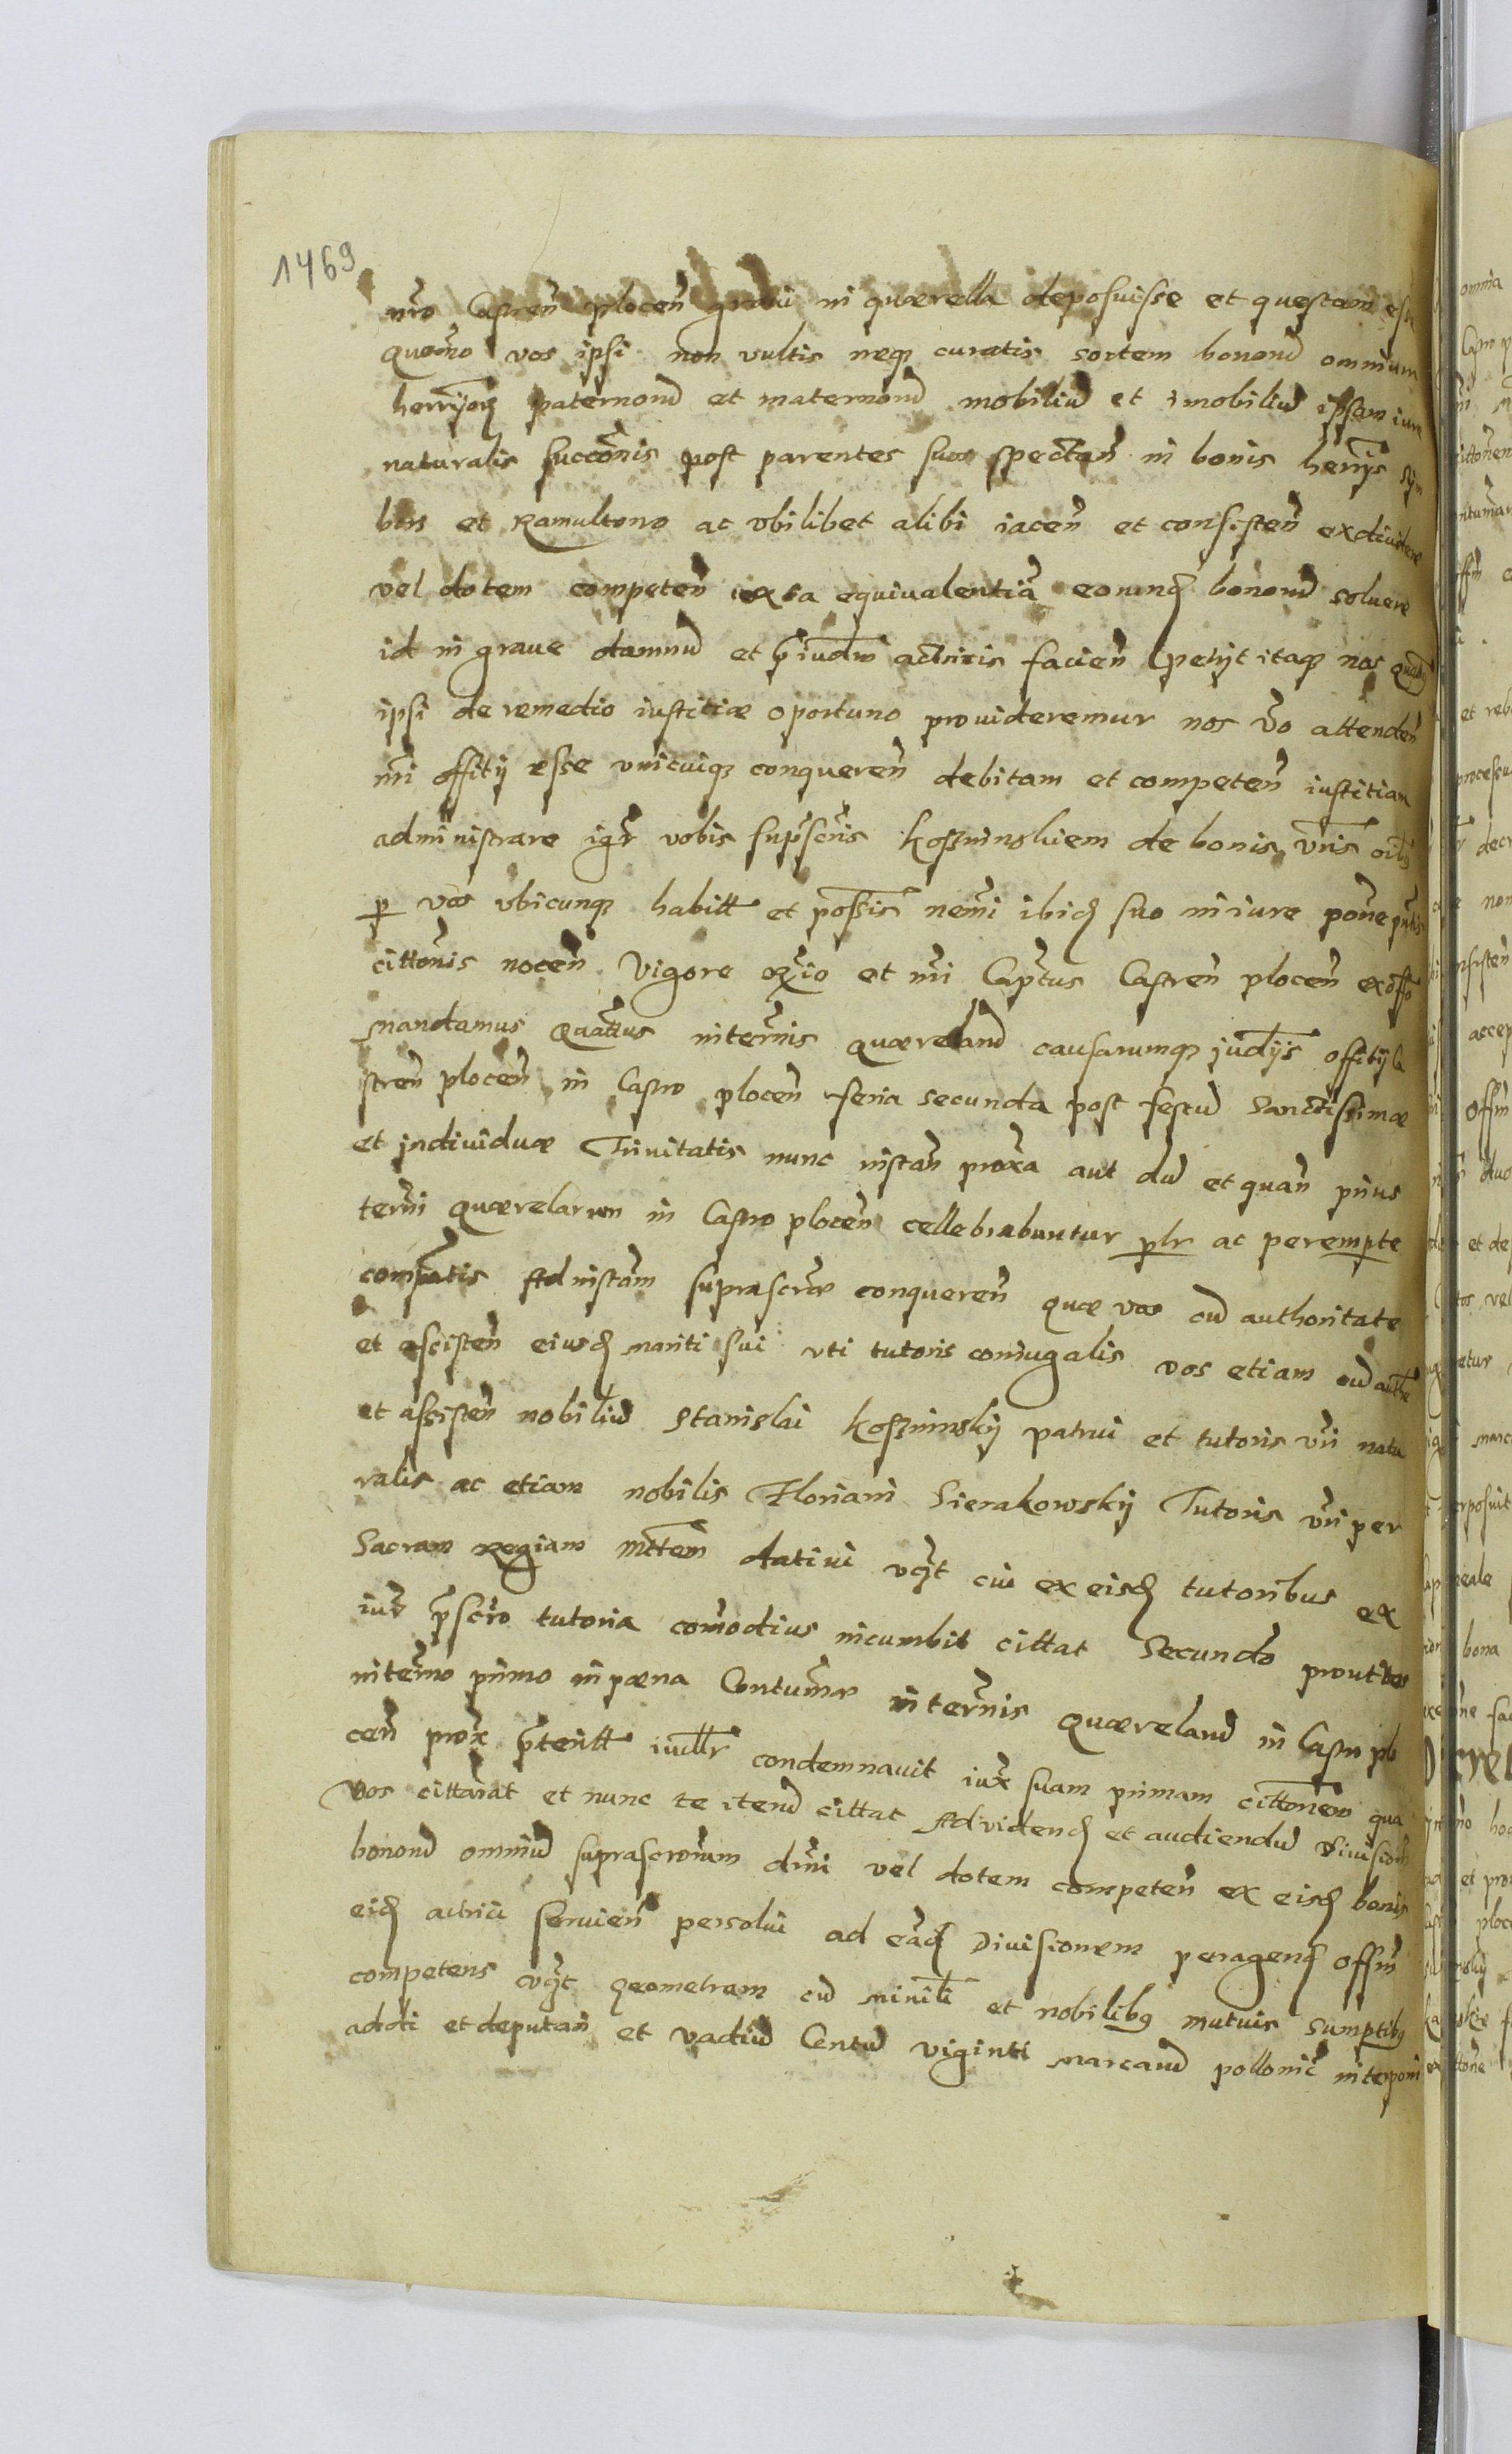 1469
nr̃o Castreñ ploceñ graui in quærella deposuisse et questam esse
quom̃o vos ipsi non vultis neq; curatis sortem bonorũ omnium
herr̃iorũ paternorũ et maternorũ mobiliũ et imobiliũ ipsam iure
naturalis succõnis post parentes suos spectañ in bonis herr̃ijs
bori et Ramultowo ac vbilibet alibi iaceñ et consisteñ exdiuidere
vel dotem competeñ iuxta equiualentiã eorund̃ bonorũ soluere
id in graue damnũ et p̃iudm̃ actricis facieñ petijt itaq; nos
ipsi de remedio iustitiæ oportuno prouideremur nos ṽo attendeñ
nr̃i offitij esse vnicuiq; conquereñ debitam et competeñ iustitiam
administrare igr̃ vobis supscr̃is Kossminskiem de bonis vr̃is oĩbus
p vos vbicunq; habitt̃ et possis̃ nemĩ ibid̃ suo in iure pone
cittõnis noceñ Vigore et nr̃i Capt̃tus Castreñ ploceñ ex off̃o
mandamus Quat̃tus in ter̃mis quærelarũ causarumq; judijs̃ offitij Ca
streñ ploceñ in Castro ploceñ feria secunda post festũ Sanctissimæ
et jndiuiduæ Trinitatis nunc instañ prox̃a aut dũ et quañ prius
ter̃mi quærelarum in Castro ploceñ cellebrabuntur plr ac perempte
compar̃atis Ad instañm suprascr̃æ conquereñ quæ vos cũ authoritate
et asisteñ eiusd̃ mariti sui vti tutoris coniugalis vos etiam cũ auth̃te
et assisteñ nobiliũ Stanislai Kossminskij patrui et tutoris vr̃i natu
ralis ac etiam nobilis Floriani Sierakowskij Tutoris vr̃i per
Sacram Regiam Mt̃tem datiui vid̃t cui ex eisd̃ tutoribus ex
iur̃ p̃scr̃o tutoria com̃odius incumbit cittat Secundo prout vos
in ter̃mo primo in pæna Contum̃æ in ter̃mis Quærelarũ in Castro plo
ceñ prox̃ p̃teritt̃ iudlr̃ condemnauit iux̃ suam primam cittõnem qua
Vos cittarat et nunc te iterũ cittat Ad videnḑ et audiendũ Diuisionẽ
bonorũ omniũ suprascr̃orum dr̃i vel dotem competeñ ex eisd̃ bonis
eid̃ actrici seruieñ persolui ad eãd̃ Diuisionem peragend̃ Offm̃
competens vid̃t Geometram cũ minilĩ et nobilibq mutuis Sumptibq
addi et deputari et vadiũ Centũ viginti marcarũ pollonic̃ interponi